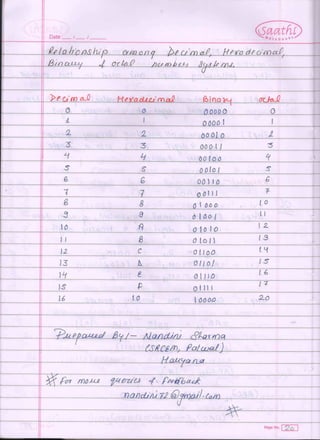 Date ___/___/___
Saathi
Relationship among Decimal, Hexadecimal,
Binary & octal numbers Systems.
Decimal Hexadecimal Binary octal
0 0 00000 0
1 1 00001 1
2 2 00010 2
3 3 00011 3
4 4 00100 4
5 5 00101 5
6 6 00110 6
7 7 00111 7
8 8 01000 10
9 9 01001 11
10 A 01010 12
11 B 01011 13
12 C 01100 14
13 D 01101 15
14 E 01110 16
15 F 01111 17
16 10 10000 20
Prepared By:- Nandini Sharma
(SRCEM, Palwal)
Haryana
# For more queries & Feedback
nandini72@gmail.com
#
Page No. 20